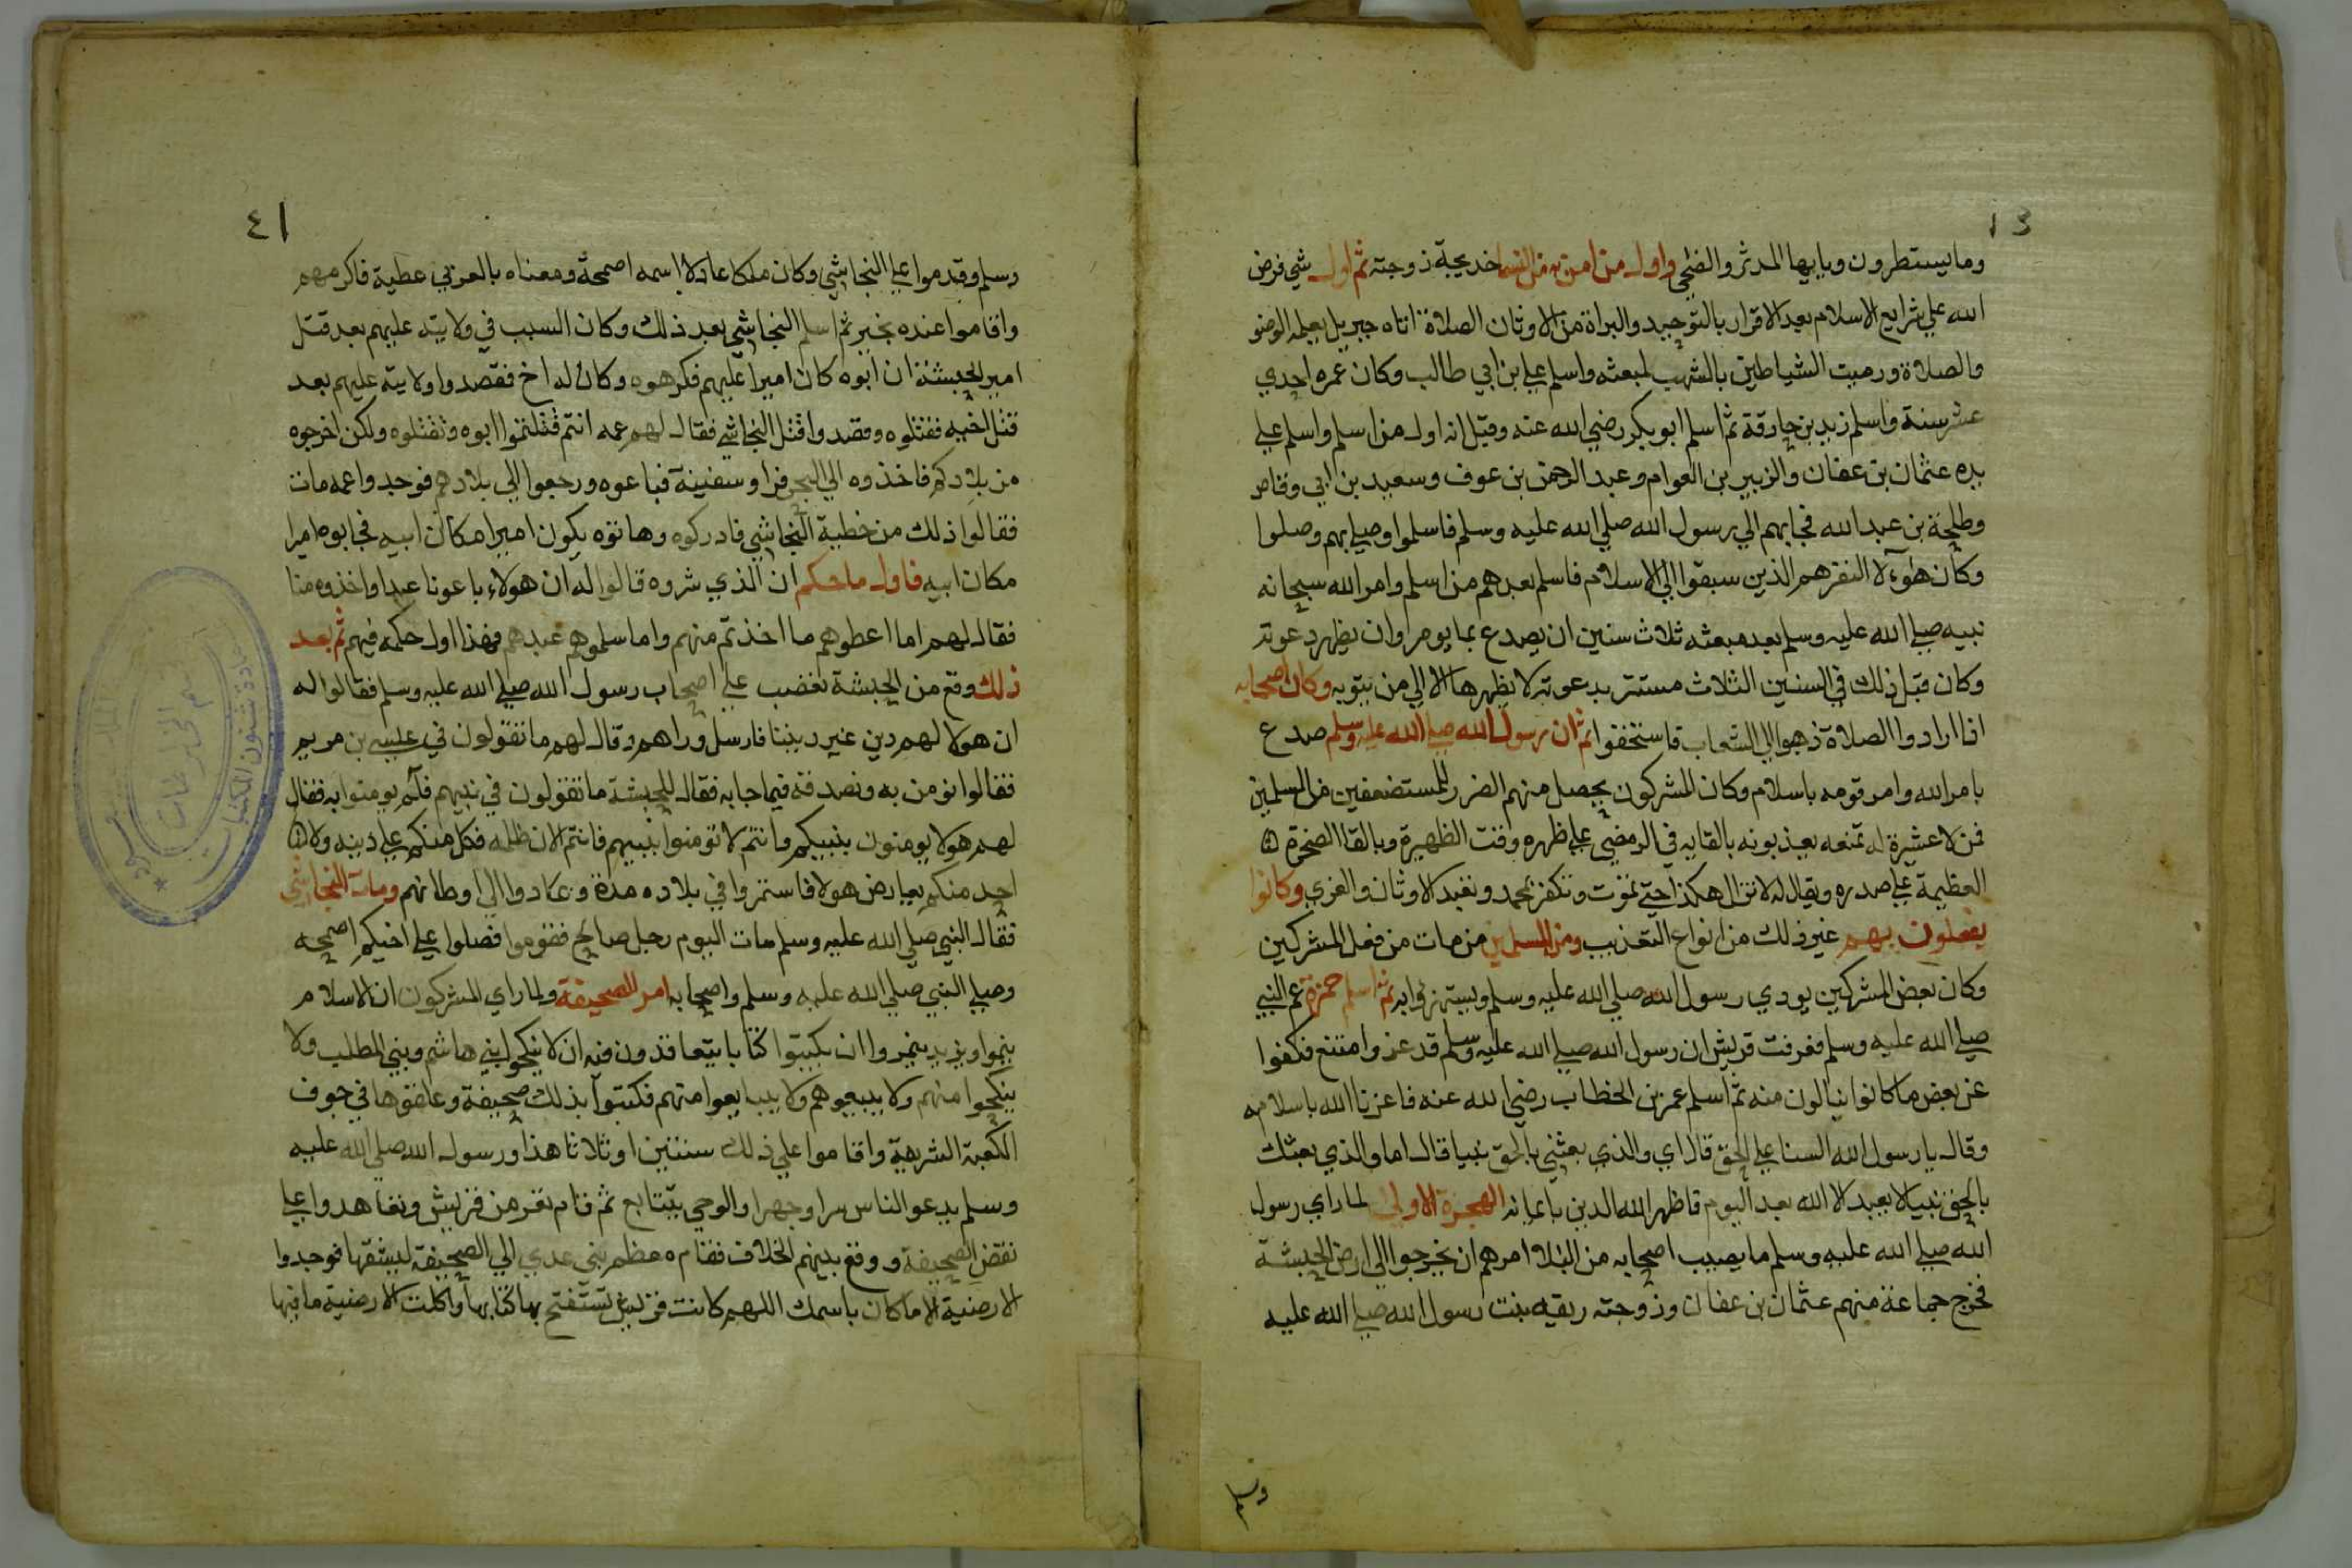 ١٣
وما يسطرون ويايها المدثر والضحى واول من امن به من النسا خديجة زوجته ثم اول شي فرض
الله علي شرايع الاسلام بعد الاقرار بالتوحيد والبراة من الاوثان الصلاة اتاه جبريل يعلمه الوضو
والصلاة ورميت الشياطين بالشهب لمبعثه واسلم علي ابن ابي طالب وكان عمره احدي
عشر سنة واسلم زيد بن حارقة ثم اسلم ابو بكر رضي الله عنه وقيل انه اول من اسلم واسلم علي
يده عثمان بن عفان والزبير بن العوام وعبد الرحمن بن عوف وسعيد بن ابي وقاص
وطلحة بن عبد الله فجا بهم الي رسول الله صلي الله عليه وسلم فاسلموا وصلي بهم وصلوا
وكان هؤلآ النفر هم الذين سبقوا الي الاسلام فاسلم بعدهم من اسلم وامر الله سبحانه
نبيه صلي الله عليه وسلم بعد مبعثه ثلاث سنين ان يصدع بما يومر وان يظهر دعوته
وكان قبل ذلك في السنين الثلاث مستتر بدعوته لا يظهرها الا الي من يثق به وكان اصحابه
اذا ارادوا الصلاة ذهبوا الي الشعاب فاستخفوا ثم ان رسول الله صلي الله عليه وسلم صدع
بامر الله وامر قومه باسلام وكان المشركون يحصل منهم الضرر للمستضعفين من المسلمين
فمن لا عشيرة له تمنعه يعذبونه بالقايه في الرمضي علي ظهره وقت الظهيرة وبالقا الصخرة
العظيمة علي صدره ويقال له لا تزال هكذا حتي تموت وتكفر بمحمد وتعبد الاوثان والعزي وكانوا
يفعلون بهم غير ذلك من انواع التعذيب ومن المسلمين من مات من فعل المشركين
وكان بعض المشركين يودي رسول الله صلي الله عليه وسلم ويستهزوا به ثم اسلم حمزة عم النبي
صلي الله عليه وسلم فعرفت قريش ان رسول الله صلي الله عليه وسلم قد عز وامتنع فكفوا
عن بعض ما كانوا ينالون منه ثم اسلم عمر بن الخطاب رضي الله عنه فاعزنا الله باسلامه
وقال يا رسول الله السنا علي الحق قال اي والذي بعثني بالحق نبيا قال اما والذي بعثك
بالحق نبيا لا يعبد الا الله بعد اليوم فاظهر الله الدين بايمانه الهجرة الاولي لما راي رسول
الله صلي الله عليه وسلم ما يصيب اصحابه من البلا امرهم ان يخرجوا الي ارض الحبشة
فخرج جماعة منهم عثمان بن عفان وزوجته ريقيه بنت رسول الله صلي الله عليه
وسلم
١٤
وسلم وقدموا علي النجاشي وكان ملكا عادلا اسمه اصحمة ومعناه بالعربي عطية فاكرمهم
واقاموا عنده بخير ثم اسلم النجاشي بعد ذلك وكان السبب في ولايته عليهم بعد قتل
امير الحبشة ان ابوه كان اميرا عليهم فكرهوه وكان له اخ فقصدوا ولايته عليهم بعد
قتل اخيه فقتلوه وقصدوا قتل النجاشي فقال لهم عمه انتم قتلتموا ابوه وتقتلوه ولكن اخرجوه
من بلادكم فاخذوه الي البحر فراو سفينة فباعوه ورجعوا الي بلادهم فوجدوا عمه مات
فقالوا ذلك من خطية النجاشي فادركوه وهاتوه يكون اميرا مكان ابيه فجابوه اميرا
مكان ابيه فاول ما حكم ان الذي شروه قالوا له ان هولاء باعونا عبدا واخذوه منا
فقال لهم اما اعطوهم ما اخذتم منهم واما سلموهم عبدهم فهذا اول حكمه فيهم ثم بعد
ذلك وقع من الحبشة تغضب علي اصحاب رسول الله صلي الله عليه وسلم فقالوا له
ان هولا لهم دين غير ديننا فارسل وراهم وقال لهم ما تقولون في عليسي بن مريم
فقالوا نومن به ونصدقه فيما جابه فقال للحبشة ما تقولون في نبيهم فلم يومنوا به فقال
لهم هولا يومنون بنبيكم وانتم لا تومنوا بنبيهم فانتم الان ظلمه فكل منكم علي دينه ولا
احد منكم يعارض هولا فاستمروا في بلاده مدة وعادوا الي اوطانهم ومات النجاشي
فقال النبي صلي الله عليه وسلم مات اليوم رجل صالح فقوموا فصلوا علي اخيكم اصمحه
وصلي النبي صلي الله عليه وسلم واصحابه امر الصحيفة ولما راي المشركون ان الاسلام
ينموا ويزيد ان يكتبوا كتابا يتعاقدون فيه ان لا ينكحوا بني هاشم وبني المطلب ولا
ينكحوا منهم ولا يبيعوهم ولا يبايعوا منهم فكتبوا بذلك صحيفة وعلقوها في جوف
الكعبة الشريفة واقاموا علي ذلك سنتين او ثلاثا هذا ورسول الله صلي الله عليه
وسلم يدعو الناس سرا وجهرا والوحي يتتابع ثم قام نفر من قريش وتعاهدوا علي
نقض الصحيفة ووقع بينهم الخلاف فقام مطعم بني عدي الي الصحيفة ليشقها فوجدوا
الارضية الا ما كان باسمك اللهم كانت قريش تستفتح بها كتابها واكلت الارضية ما فيها